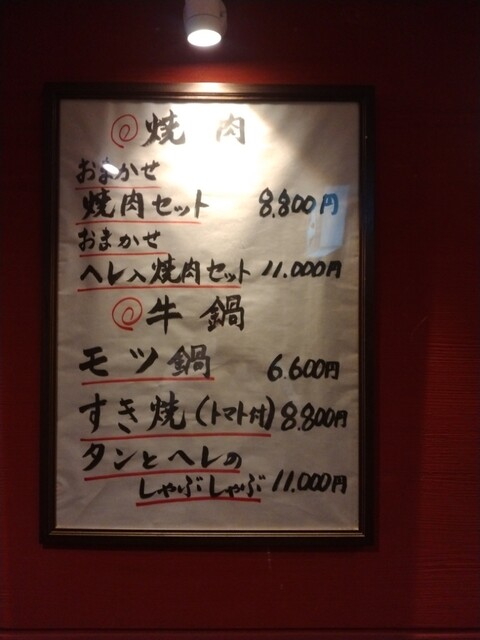 焼肉
おまかせ
焼肉セット 8.800円
おまかせ
ヘレ入焼肉セット 11.000円
牛鍋
モツ鍋 6.600円
すき焼(トマト付) 8.800円
タンとヘレの
しゃぶしゃぶ 11.000円